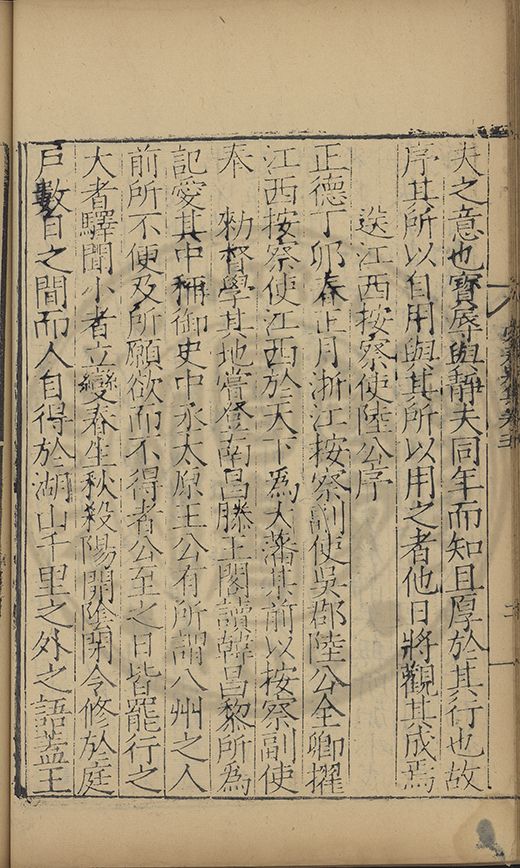 夫之意也寶辱與靜夫同年而知且厚於其行也故
序其所以自用與其所以用之者他日將觀其成焉
送江西按察使陸公序
正德丁卯春正月浙江按察副使吳郡陸公全卿擢
江西按察使江西於天下爲大藩某前以按察副使
奉　勑督學其地嘗登南昌滕王閣讀韓昌黎所爲
記愛其中稱御史中丞太原王公有所謂八州之人
前所不便及所願欲而不得者公至之日皆罷行之
大者驛聞小者立變春生秋殺陽開陰閉令修於庭
戶數日之間而人自得於湖山千里之外之語蓋王